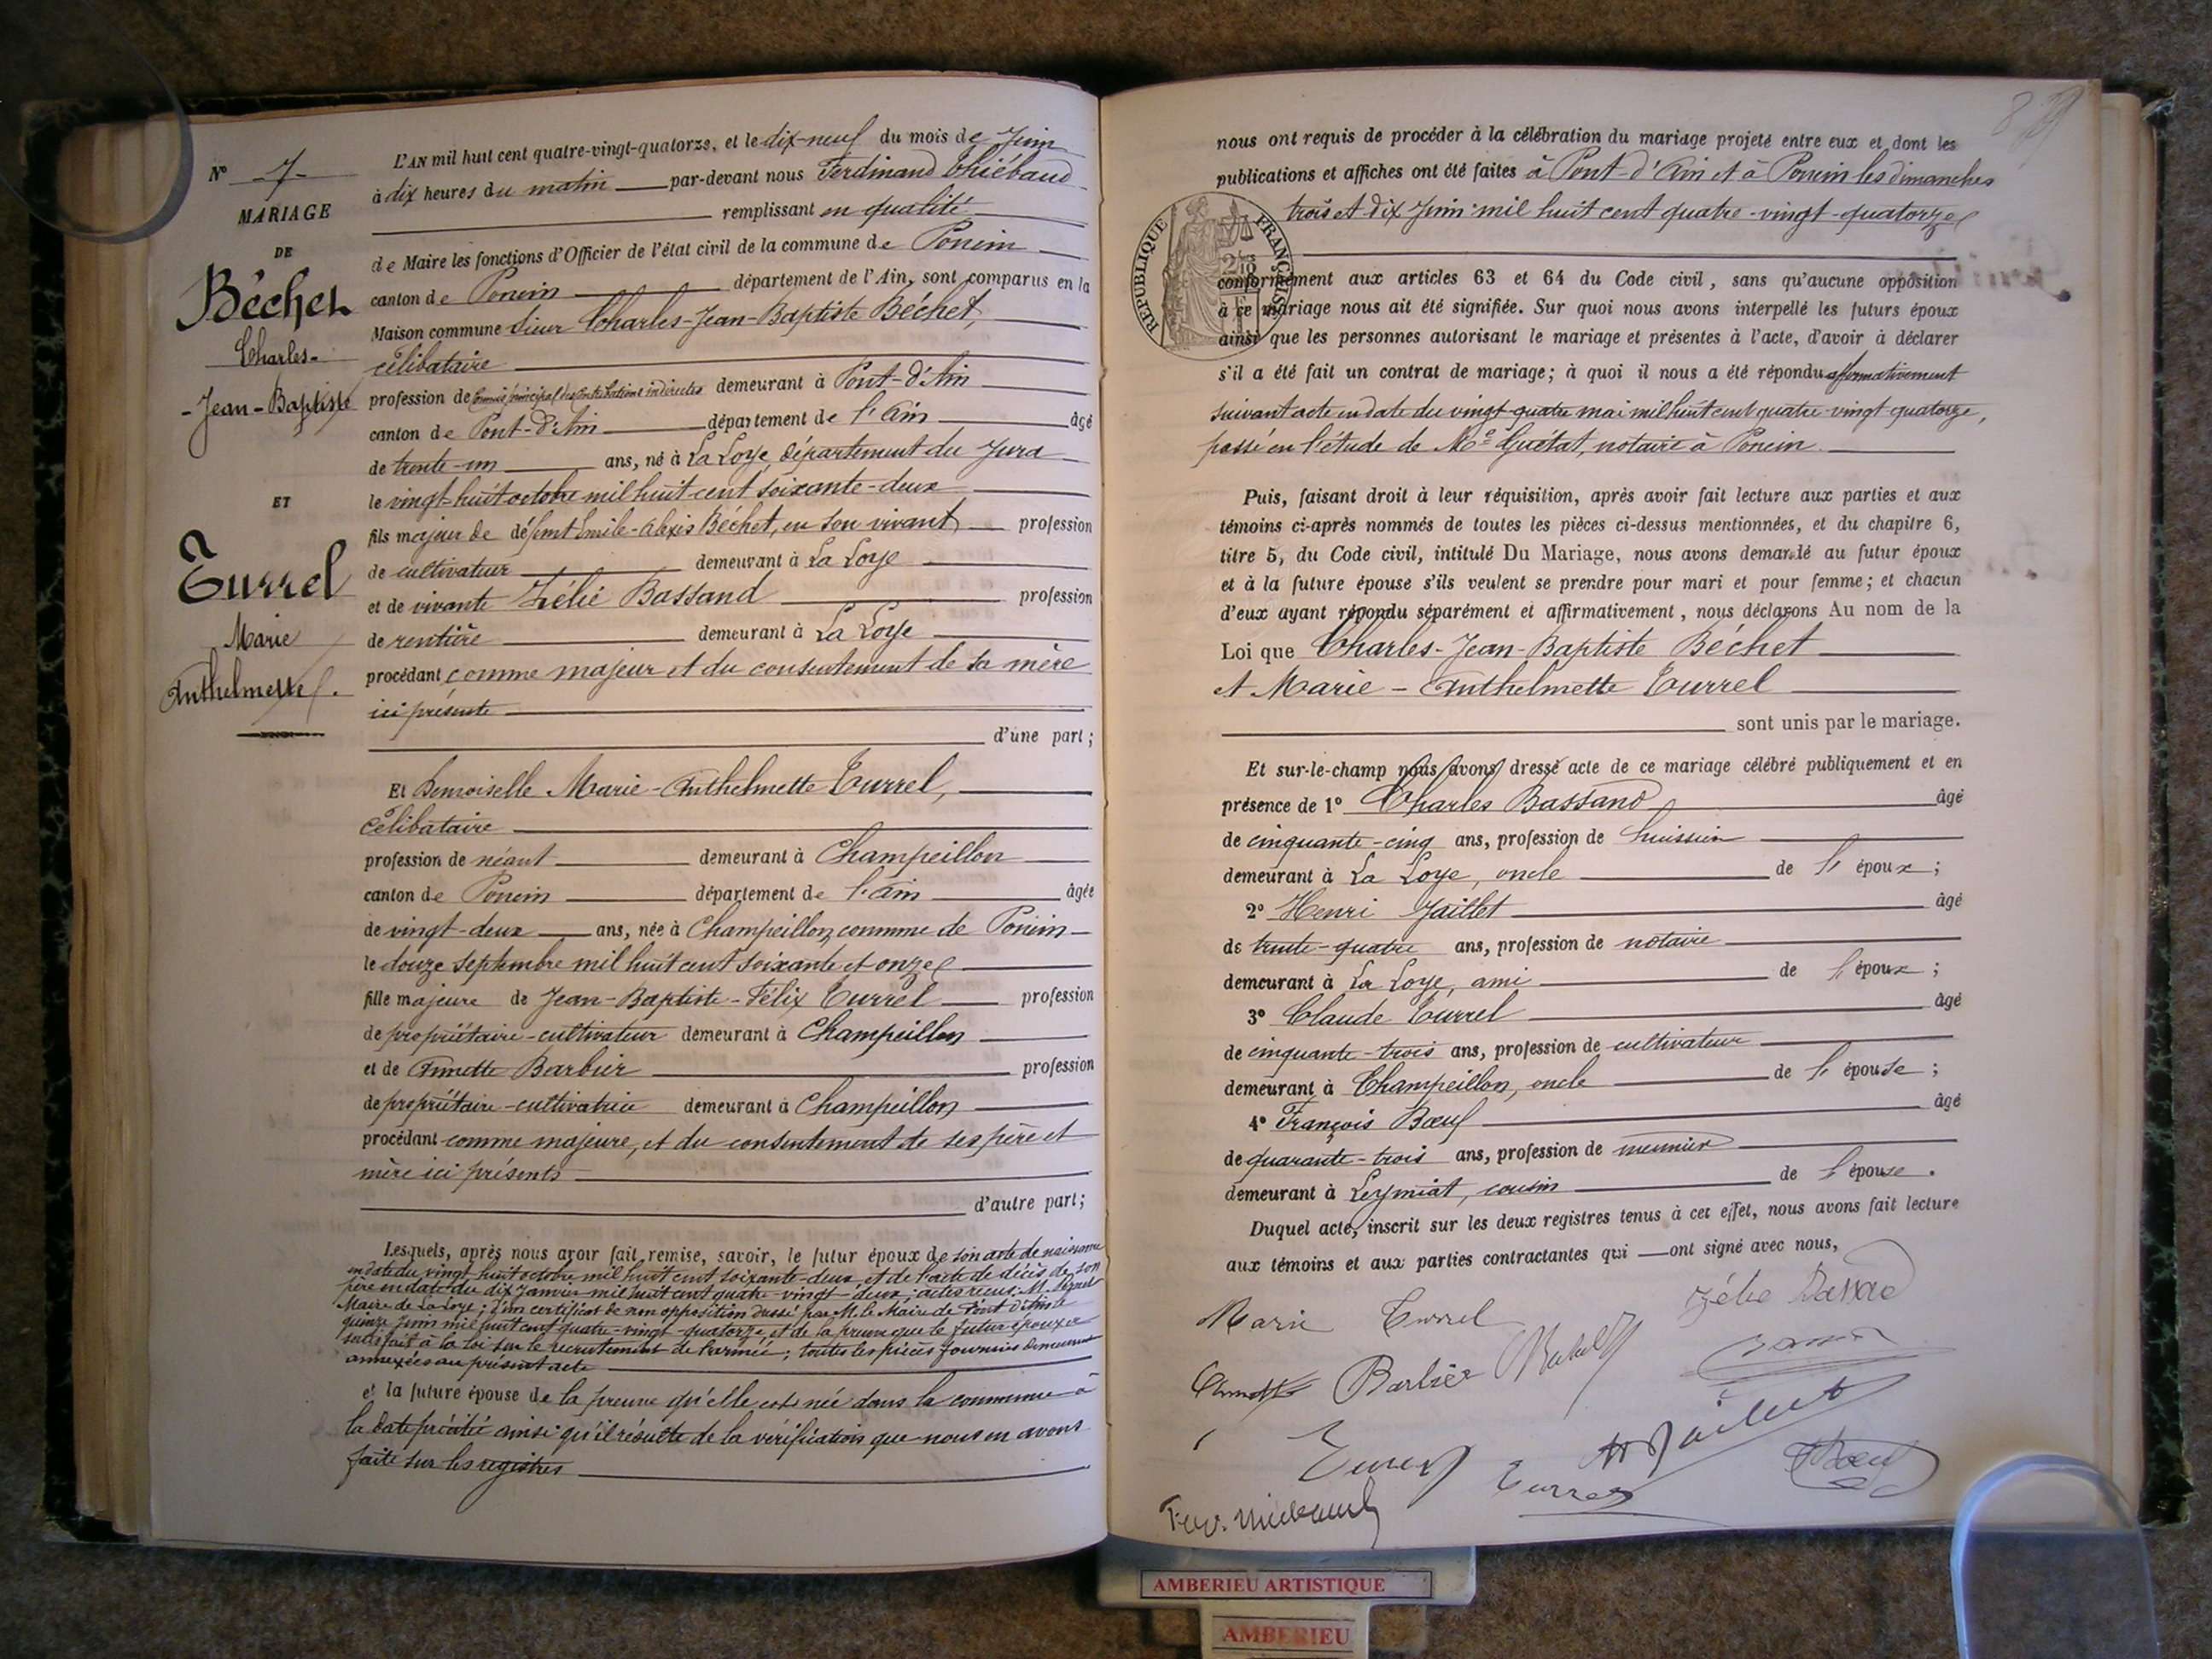 N° 7
MARIAGE
DE
Béchet
Charles-
-Jean-Baptiste
ET
Turrel
Marie
Anthelmette.
L'AN mil huit cent quatre-vingt-quatorze, et le dix-neuf du mois de Juin
à dix heures du matin par-devant nous Ferdinand Thiébaud
remplissant en qualité
de Maire les fonctions d'Officier de l'état civil de la commune de Poncin
canton de Poncin département de l'Ain, sont comparus en la
Maison commune Sieur Charles-Jean-Baptiste Béchet,
célibataire
profession de Commis principal des Contributions indirectes demeurant à Pont-d'Ain
canton de Pont-d'Ain département de l'Ain âgé
de trente-un ans, né à La Loye, département du Jura
le vingt-huit octobre mil huit cent soixante-deux
fils majeur de défunt Emile-Alexis Béchet, en son vivant profession
de cultivateur demeurant à La Loye
et de vivante Zélie Bassand profession
de rentière demeurant à La Loye
procédant comme majeur et du consentement de sa mère
ici présente
d'une part;
Et Demoiselle Marie-Anthelmette Turrel,
célibataire
profession de néant demeurant à Champeillon
canton de Poncin département de l'Ain âgée
de vingt-deux ans, née à Champeillon, commune de Poncin
le douze septembre mil huit cent soixante et onze
fille majeure de Jean-Baptiste-Félix Turrel profession
de propriétaire-cultivateur demeurant à Champeillon
et de Annette Barbier profession
de propriétaire-cultivatrice demeurant à Champeillon
procédant comme majeure, et du consentement de ses père et
mère ici présents
d'autre part;
Lesquels, après nous avoir fait remise, savoir, le futur époux de son acte de naissance
en date du vingt huit octobre mil huit cent soixante-deux, et de l'acte de décès de son
père en date du dix Janvier mil huit cent quatre-vingt-deux; actes reçus M.
Maire de La Loye; d'un certificat de non opposition dressé par M. le Maire de Pont d'Ain le
quinze Juin mil huit cent quatre-vingt-quatorze, et de la preuve que le futur époux a
satisfait à la loi sur le recrutement de l'armée; toutes les pièces fournies demeurent
annexées au présent acte
et la future épouse de la preuve qu'elle est née dans la commune à
la date précitée ainsi qu'il résulte de la vérification que nous en avons
faite sur les registres
nous ont requis de procéder à la célébration du mariage projeté entre eux et dont les
publications et affiches ont été faites à Pont-d'Ain et à Poncin les dimanches
trois et dix Juin mil huit cent quatre-vingt-quatorze
RÉPUBLIQUE FRANÇAISE
conformément aux articles 63 et 64 du Code civil, sans qu'aucune opposition
à ce mariage nous ait été signifiée. Sur quoi nous avons interpellé les futurs époux
ainsi que les personnes autorisant le mariage et présentes à l'acte, d'avoir à déclarer
s'il a été fait un contrat de mariage; à quoi il nous a été répondu affirmativement
suivant acte en date du vingt-quatre mai mil huit cent quatre-vingt-quatorze,
passé en l'étude de Me Guétat, notaire à Poncin
Puis, faisant droit à leur réquisition, après avoir fait lecture aux parties et aux
témoins ci-après nommés de toutes les pièces ci-dessus mentionnées, et du chapitre 6,
titre 5, du Code civil, intitulé Du Mariage, nous avons demandé au futur époux
et à la future épouse s'ils veulent se prendre pour mari et pour femme; et chacun
d'eux ayant répondu séparément et affirmativement, nous déclarons Au nom de la
Loi que Charles-Jean-Baptiste Béchet
et Marie-Anthelmette Turrel
sont unis par le mariage.
Et sur-le-champ nous avons dressé acte de ce mariage célébré publiquement et en
présence de 1° Charles Bassand âgé
de cinquante-cinq ans, profession de huissier
demeurant à La Loye, oncle de l'époux;
2° Henri Jaillet âgé
de trente-quatre ans, profession de notaire
demeurant à La Loye, ami de l'époux;
3° Claude Turrel âgé
de cinquante-trois ans, profession de cultivateur
demeurant à Champeillon, oncle de l'épouse;
4° François Bœuf âgé
de quarante-trois ans, profession de meunier
demeurant à Leymiat, cousin de l'épouse.
Duquel acte, inscrit sur les deux registres tenus à cet effet, nous avons fait lecture
aux témoins et aux parties contractantes qui ont signé avec nous,
Marie Turrel
Zélie Bassand
Annette Barbier
H Jaillet
Turrel
Turrel
Bœuf
AMBERIEU ARTISTIQUE
AMBERIEU